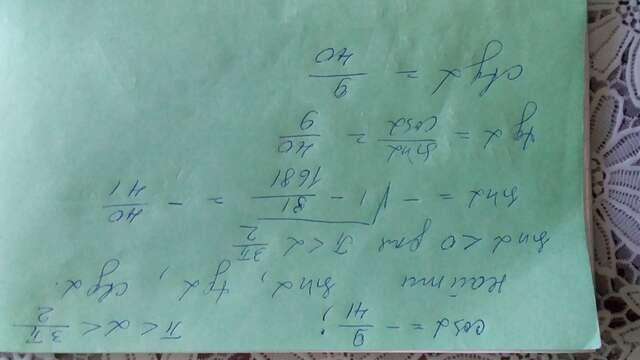 cosα = - 9/41 ; π < α < 3π/2
найти sinα, tgα, ctgα.
sinα < 0 для π < α 3π/2
sinα = - √(1 - 81/1681) = - 40/41
tgα = sinα/cosα = 40/9
ctgα = 9/40